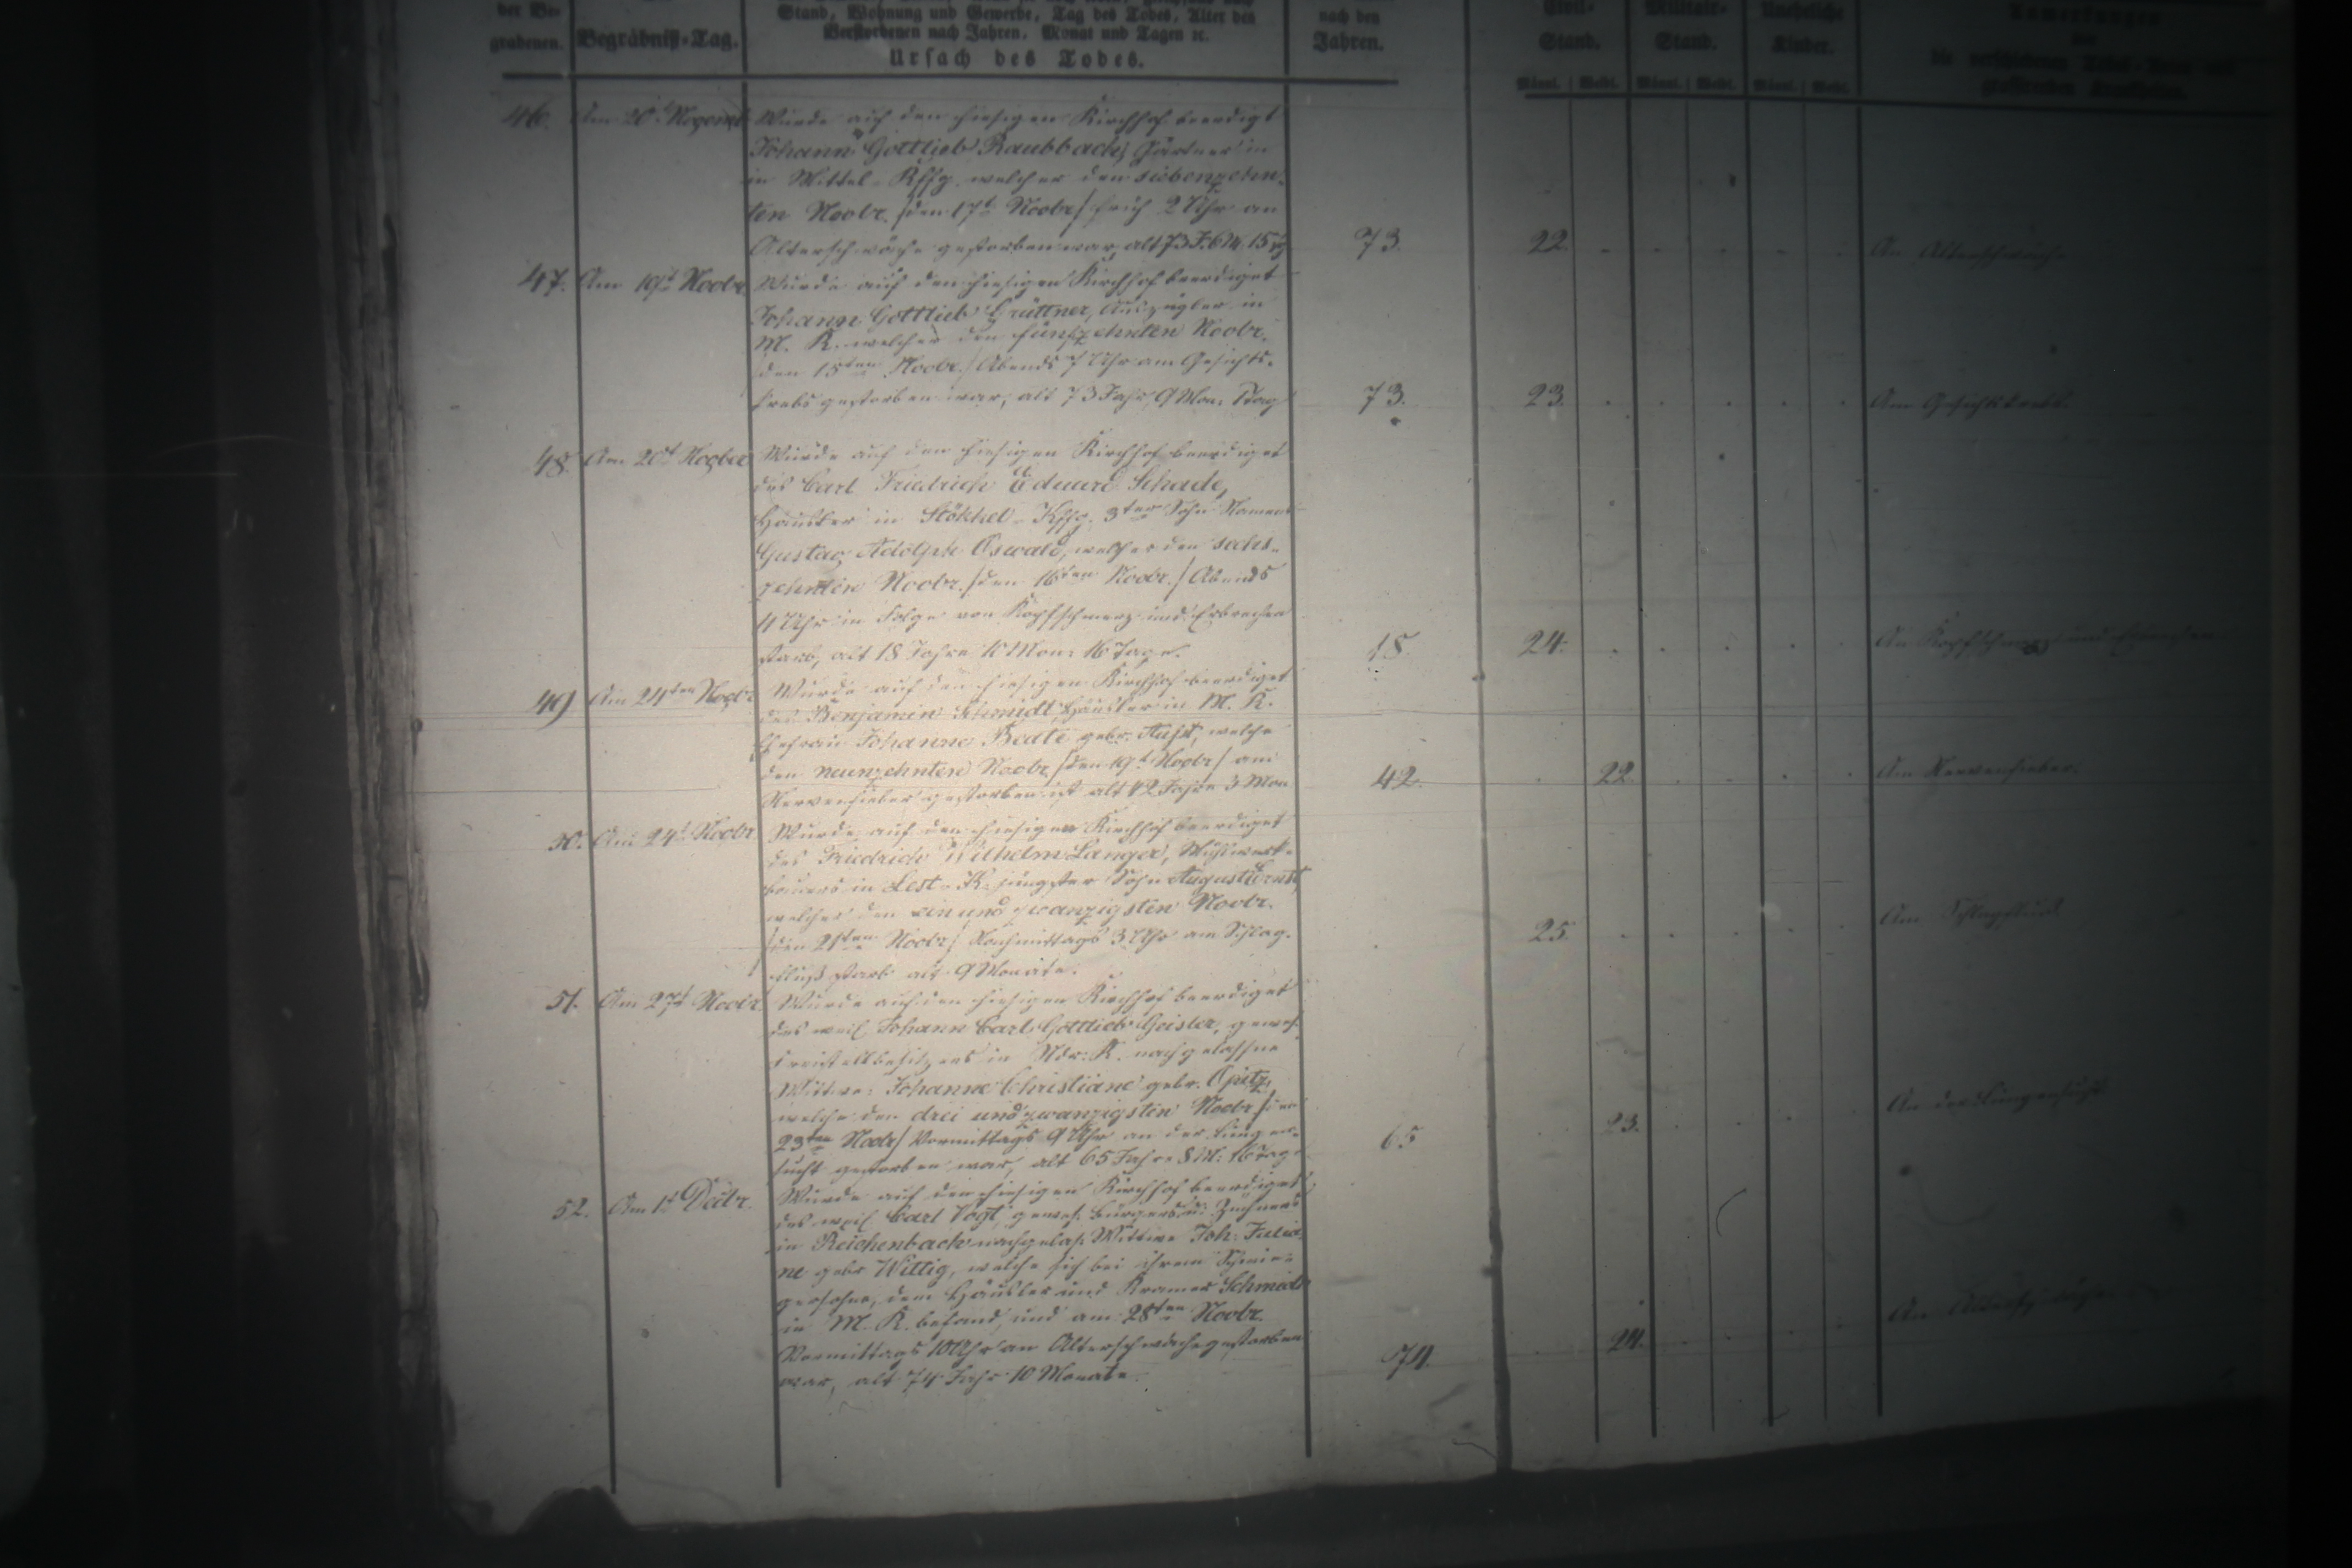 der Be-
grabenen.
Begräbniß-Tag.
Stand, Wohnung und Gewerbe, Tag des Todes, Alter des
Verstorbenen nach Jahren, Monat und Tagen ꝛc.
Ursach des Todes.
nach den
Jahren.
Civil-
Stand.
Militair-
Stand.
Uneheliche
Kinder.
Anmerkungen
Männl. Weibl. Männl. Weibl. Männl. Weibl.
46. Am 20t Novemb. Wurde auf den hiesigen Kirchhof beerdigt
Johann Gottlieb Raubbach, Gärtner in
in Mittel-Kffg. welcher den siebenzehn-
ten Novbr. /den 17t Novbr/ früh 2 Uhr an
Altersschwäche gestorben war, alt 73 J. 6 M. 15 73. 22. An Altersschwäche
47. Am 19t Novbr. Wurde auf den hiesigen Kirchhof beerdiget
Johann Gottlieb Grüttner, Auszügler in
M. K. welcher den fünfzehnten Novbr.
/den 15ten Novbr./ Abends 7 Uhr am Gesichts-
krebs gestorben war, alt 73 Jahr, 9 Mon. 73. 23. Am Gesichtskrebs.
48. Am 20t Novbr Wurde auf den hiesigen Kirchhof beerdiget
des Carl Friedrich Eduard Schade,
Häusler in Stöckel-Kffg. 3ter Sohn Namens
Gustav Adolph Oswald, welcher den sechs-
zehnten Novbr. /den 16ten Novbr./ Abends
Uhr in Folge von Kopfschmerz und Erbrechen
starb, alt 18 Jahre 10 Mon: 16 Tage. 18. 24. An Kopfschmerz und Erbrechen
49 Am 24ten Novbr Wurde auf den hiesigen Kirchhof beerdiget
des Benjamin Schmidt Häusler in M. K.
Ehefrau Johanne Beate gebr. welche
den neunzehnten Novbr. /den 19t Novbr/ am
Nervenfieber gestorben ist alt 42 Jahre 3 Mon 42. 22. Am Nervenfieber.
50. Am 24t Novbr. Wurde auf den hiesigen Kirchhof beerdiget
des Friedrich Wilhelm Langer,
bauers in Lest-K. jüngster Sohn August Ernst,
welcher den ein und zwanzigsten Novbr.
/den 21ten Novbr/ Nachmittags 3 Uhr am Schlag-
fluß starb alt 9 Monate. 25. Am Schlagfluß
51. Am 27t Novbr. Wurde auf den hiesigen Kirchhof beerdiget
des weil Johann Carl Gottlieb Geisler, gewes.
Freistellbesitzers in Ndr: K. nachgelassne
Wittwe: Johanne Christiane gebr. Opitz,
welche den drei und zwanzigsten Novbr /den
23ten Novbr/ Vormittags 9 Uhr an der Lungen-
sucht gestorben war, alt 65 Jahre 8 M: 16 Tage 65 23. An der Lungensucht
52. Am 1t Decbr. Wurde auf den hiesigen Kirchhof beerdiget,
des weil Carl Vogt, gewes. Bürgers u: Züchners
in Reichenbach nachgelass. Wittwe Joh: Julia-
ne gebr Wittig, welche sich bei ihrem Schwie-
gersohne, dem Häusler und Kramer Schmidt
in M. K. befand, und am 28ten Novbr.
Vormittags 10 Uhr an Altersschwäche gestorben
war, alt 74 Jahr 10 Monate. 74. 24. An Altersschwäche